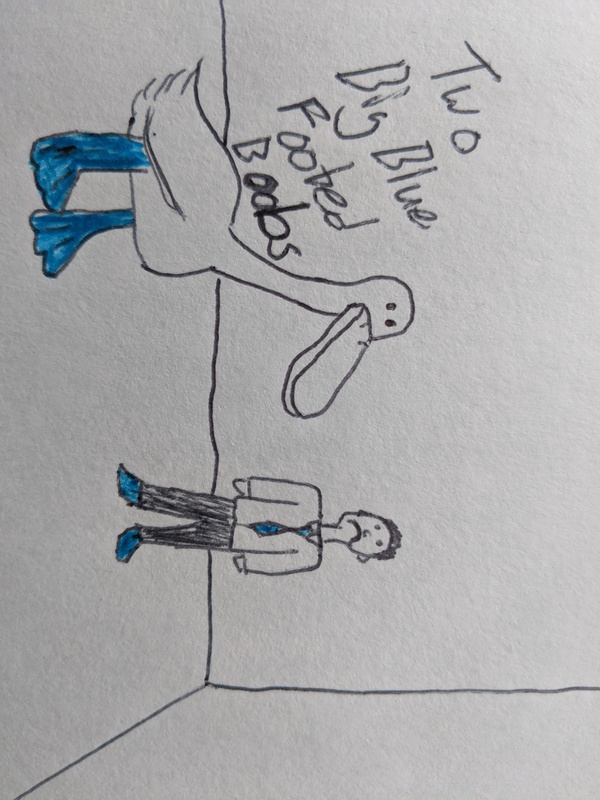 Two
Big Blue
Footed
Boobs